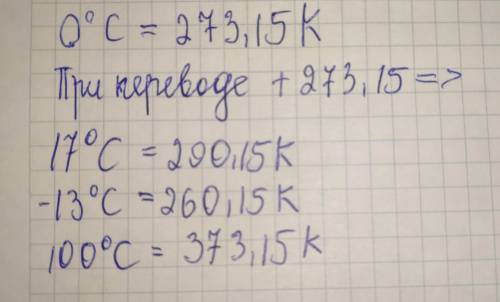 0°C = 273,15K
При переводе + 273,15 =>
17°C = 290,15K
-13°C = 260,15K
100°C = 373,15K